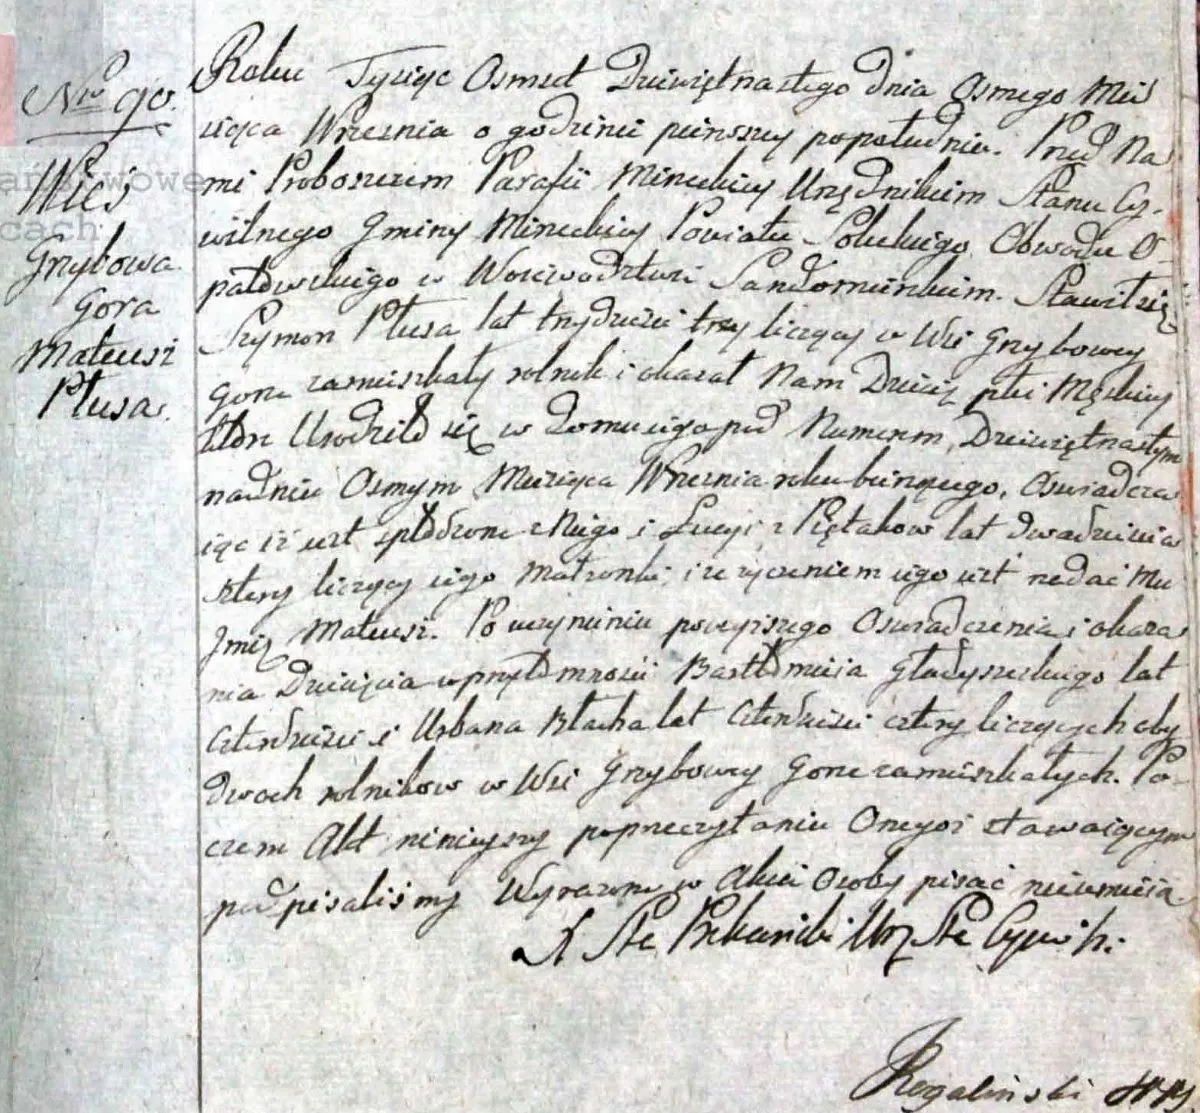 Nro 90.
Wieś
Grzybowa
Gora
Mateusz
Płusa.
Roku Tysiąc Osmset Dziewiętnastego dnia Osmego Mie
siąca Wrzesnia o godzinie pierwszey popołudniu. Przed Na
mi Proboszczem Parafii Mireckiey Urzędnikiem Stanu Cy-
wilnego Gminy Mireckiey Powiatu Soleckiego Obwodu O-
patowskiego w Woiewodztwie Sandomirskim. Stawił się
Szymon Płusa lat trzydzieści trzy liczący w Wsi Grzybowey
gorze zamieszkały rolnik i okazał Nam Dziecię płci Męskiey
ktore Urodziło się w Domu iego pod Numerem Dziewiętnastym
nadniu Osmym Miesiąca Wrzesnia roku bieżącego. Oswiadcza
iąc iż iest spłodzone z Niego i Łucyi z Piętakow lat dwadzieścia
cztery liczącey iego Małżonki, i że życzeniem iego iest nadać Mu
Jmię Mateusz. Po uczynieniu powyższego Oswiadczenia i okaza
nia Dziecięcia w przytomności Bartłomieia Gładyszeskiego lat
czterdzieści i Urbana Błacha lat czterdzieści cztery liczących oby
dwoch rolnikow w Wsi Grzybowey Gorze zamieszkałych. Po-
czem Akt ninieyszy poprzeczytaniu Onegoż stawaiącym
podpisaliśmy Wyrażone w Akcie Osoby pisać nieumieią.
X Ste Urz Sta Cywil:
Rogaliński
aństwowe
cach